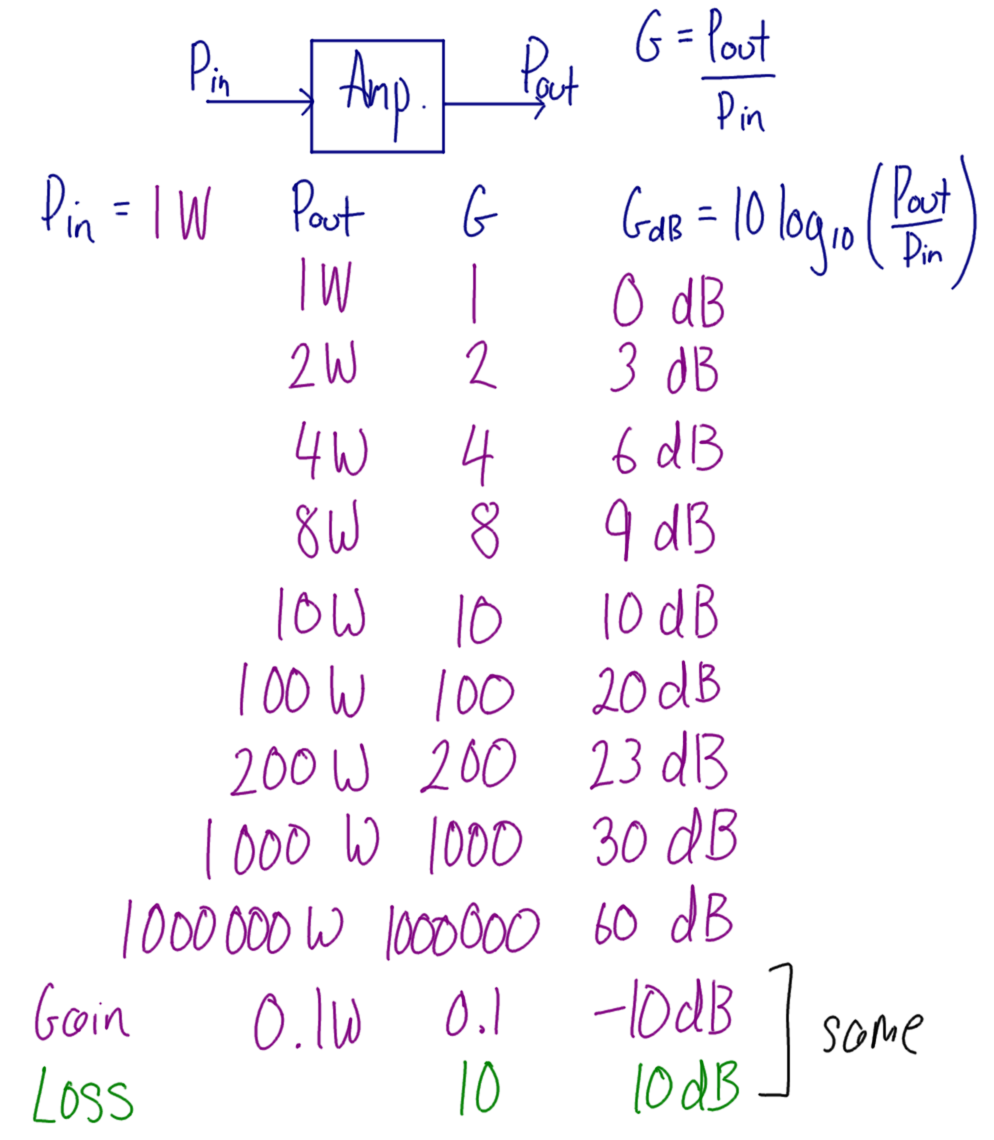 Pin Amp. Pout G = Pout / Pin
Pin = 1W Pout G GdB = 10 log10 (Pout / Pin)
1W 1 0 dB
2W 2 3 dB
4W 4 6 dB
8W 8 9 dB
10W 10 10 dB
100 W 100 20 dB
200 W 200 23 dB
1000 W 1000 30 dB
1000000 W 1000000 60 dB
Gain 0.1W 0.1 -10dB
Loss 10 10dB
same